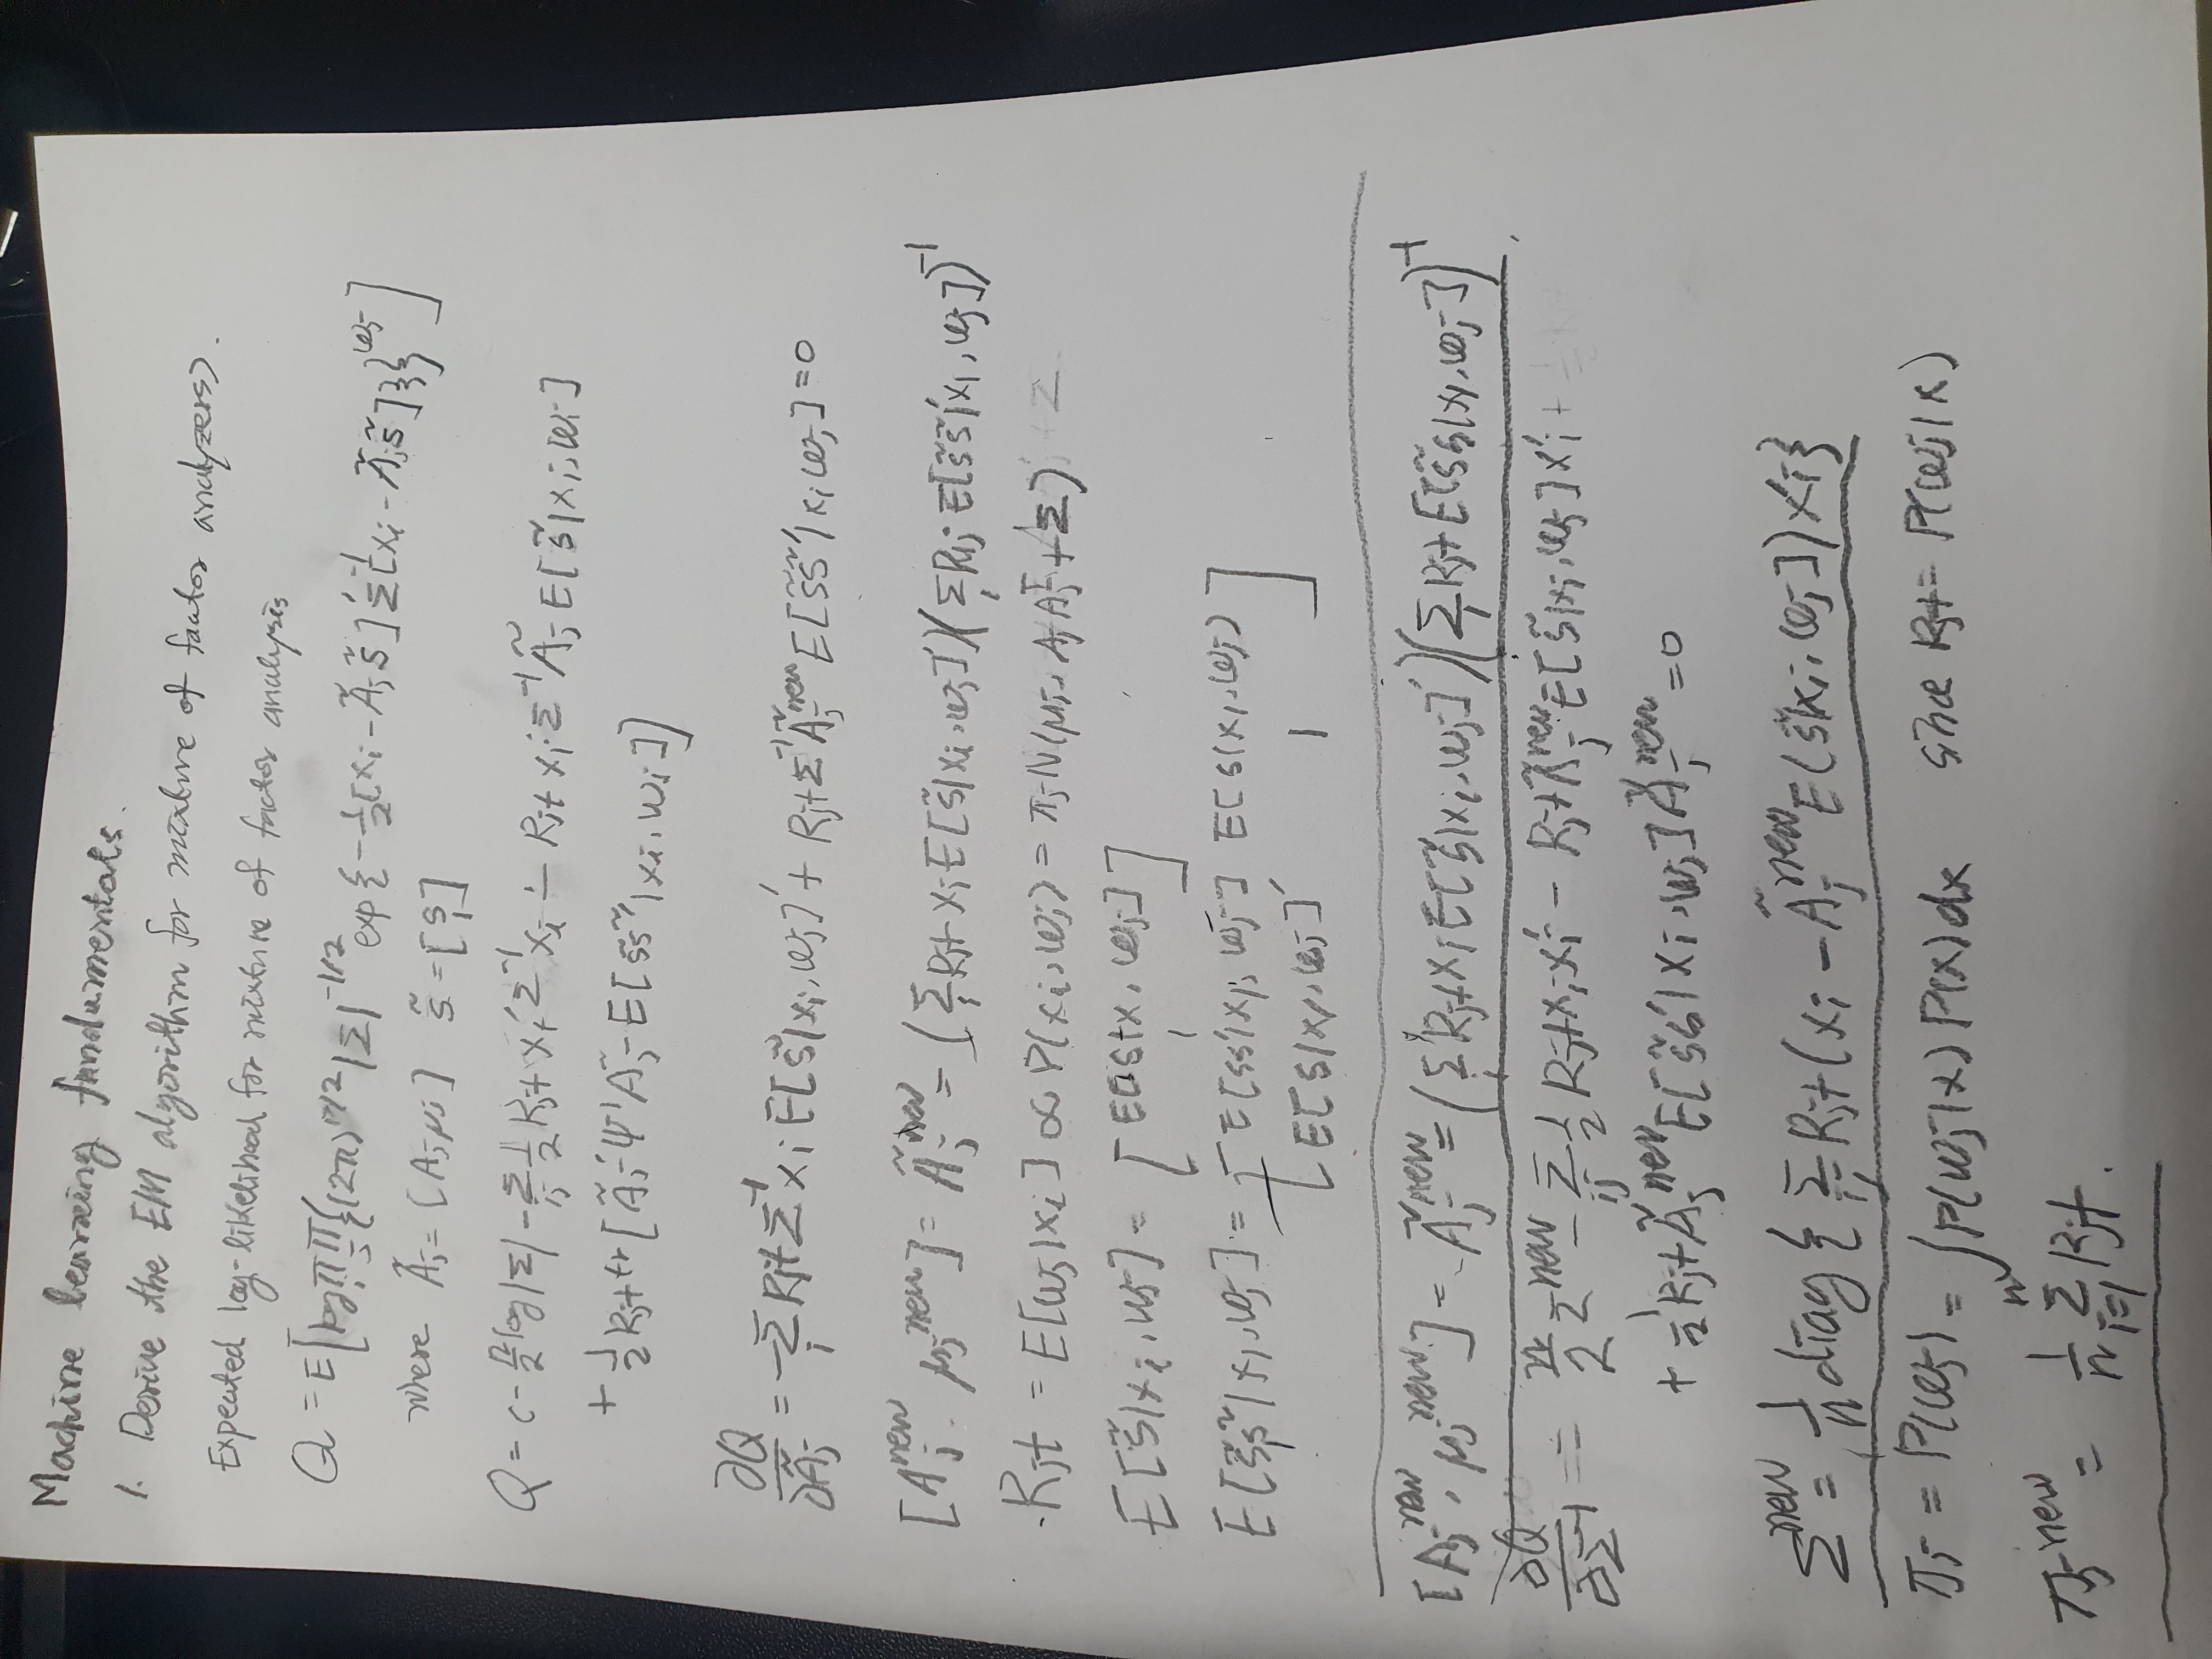 Machine learning fundamentals.
1. Derive the EM algorithm for mixture of factor analyzers).
Expected log-likelihood for mixture of factor analysis
Q = E[log π_i π_j {(2π)^{p/2} |Σ|^{-1/2} exp{-1/2[x_i - Ã_j s̃]' Σ^{-1} [x_i - Ã_j s̃]}}^{ω_j}]
where Ã_j = [A_j μ_j] s̃ = [s 1]
Q = c - n/2 log|Σ| - Σ_{ij} 1/2 R_jt x_i' Σ^{-1} x_i - R_jt x_i' Σ^{-1} Ã_j E[s̃|x_i, ω_i]
+ 1/2 R_jt tr[Ã_j' Ψ^{-1} Ã_j E[s̃s̃'|x_i, ω_i]]
∂Q/∂Ã_j = -Σ_i R_jt Σ^{-1} x_i E[s̃|x_i, ω_j]' + R_jt Σ^{-1} Ã_j^{new} E[s̃s̃'|x_i ω_j] = 0
[A_j^{new}. μ_j^{new}] = Ã_j^{new} = (Σ_i R_jt x_i E[s̃|x_i, ω_j]')(Σ_i R_ij E[s̃s̃'x_i, ω_j])^{-1}
R_jt = E[ω_j|x_i] ∝ P(x_i, ω_i) = π_j N(μ_j, A_j A_j^T + Σ)
E[s̃|x_i, ω_j] = [E[s|x, ω_j] 1]
E[s̃s̃'|x_i, ω_j] = [E[ss'|x_i, ω_j] E[s|x_i, ω_j)
E[s|x_i, ω_j]' 1]
[A_j^{new}, μ_j^{new}] = Ã_j^{new} = (Σ_i R_jt x_i E[s̃|x_i, ω_j]')(Σ_i R_jt E[s̃s̃|x_i, ω_j])^{-1}
∂Q/∂Σ^{-1} = n/2 Σ^{new} - Σ_{ij} 1/2 R_jt x_i x_i' - R_jt Ã_j^{new} E[s̃|x_i, ω_j] x_i'
+ 1/2 R_jt Ã_j^{new} E[s̃s̃'|x_i, ω_j] Ã_j^{new} = 0
Σ^{new} = 1/n diag{Σ_{ij} R_jt (x_i - Ã_j^{new} E(s̃|x_i, ω_j]) x_i'}
π_j = P(ω_j) = ∫P(ω_j|x) P(x) dx since R_jt = P(ω_j|x)
π_j^{new} = 1/n Σ_{i=1}^{n} R_jt.